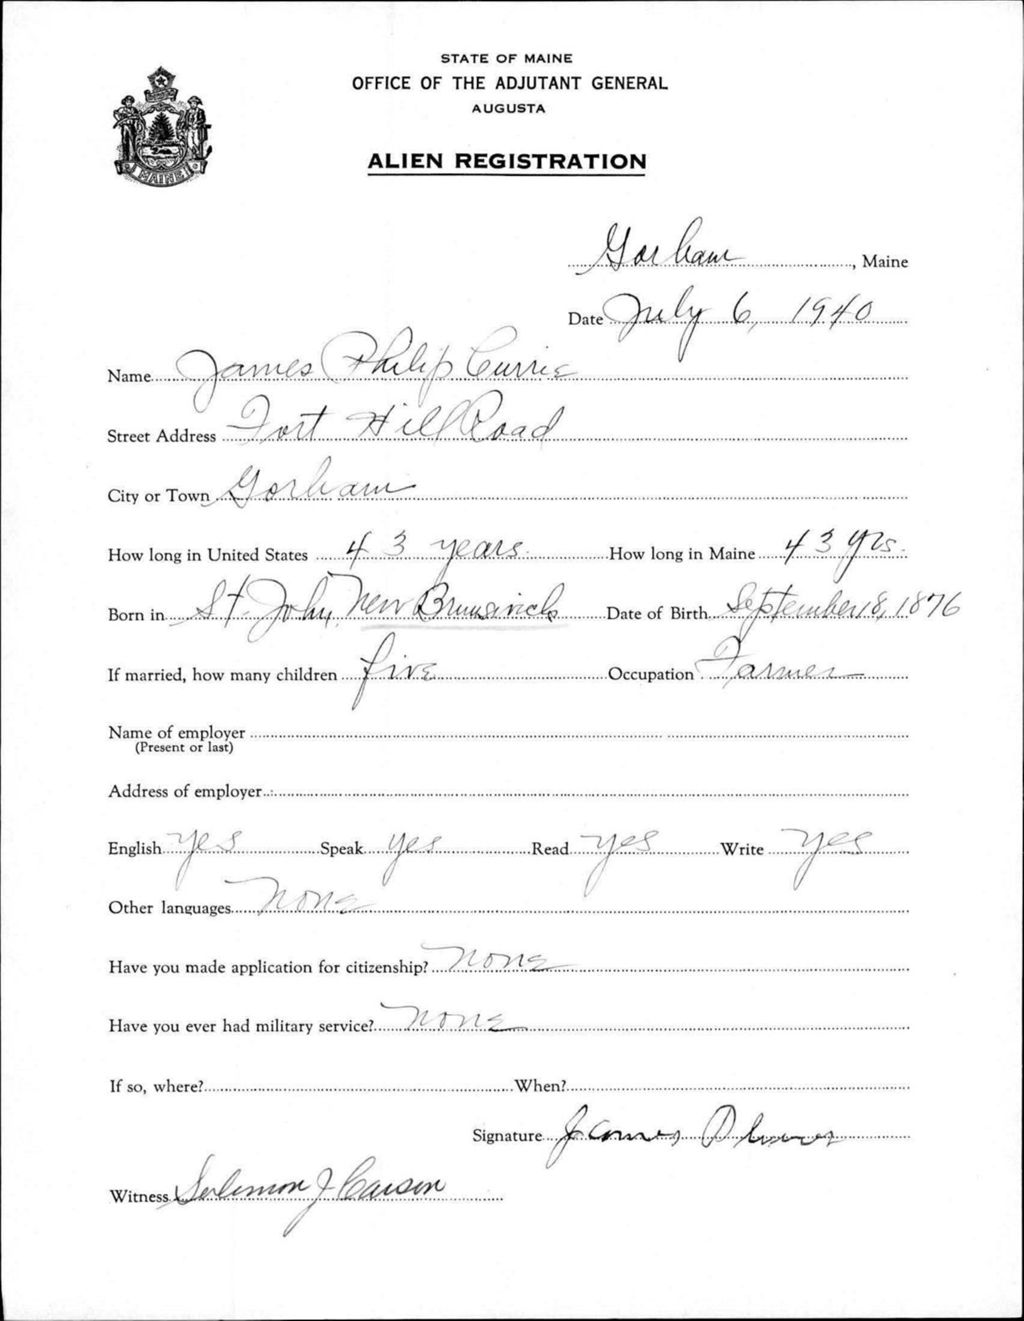 STATE OF MAINE
OFFICE OF THE ADJUTANT GENERAL
AUGUSTA
ALIEN REGISTRATION
MAINE
Gorham, Maine
Date July 6, 1940
Name James Philip Currie
Street Address Fort Hill Road
City or Town Gorham
How long in United States 43 years. How long in Maine 43 yrs.
Born in St. John, New Brunswick Date of Birth September 18, 1876
If married, how many children five Occupation Farmer
Name of employer
(Present or last)
Address of employer
English yes Speak yes Read yes Write yes
Other languages none
Have you made application for citizenship? none
Have you ever had military service? none
If so, where? When?
Signature James P
Witness Solomon J Carson